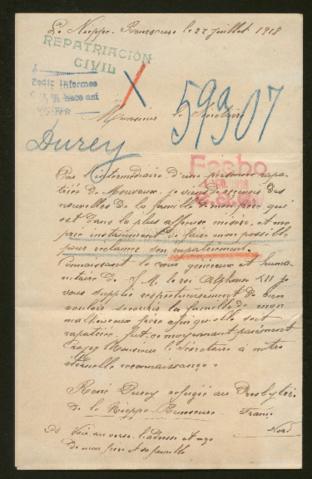 La Nieppe-Renescure le 22 juillet 1918
REPATRIACIÓN
CIVIL
Pedir informes
59307
Monsieur le Secrétaire
Durey
Par l'intermédiaire d'une personne rapa-
triée de Mouvaux, je viens de recevoir des
nouvelles de la famille de mon frère qui
est dans la plus affreuse misère, et me
prie instamment de faire mon possible
pour réclamer son rapatriement.
Connaissant le cœur généreux et huma-
nitaire de S. M. le roi Alphonse XIII je
vous supplie respectueusement de bien
vouloir secourir la famille de mon
malheureux frère afin qu'elle soit
rapatriée, fut-ce moyennant paiement
Croyez Monsieur le Secrétaire à notre
éternelle reconnaissance.
René Durey réfugié au Presbytère
de la Nieppe-Renescure France
Nord
Voir au verso l'adresse et âge
de mon frère et sa famille